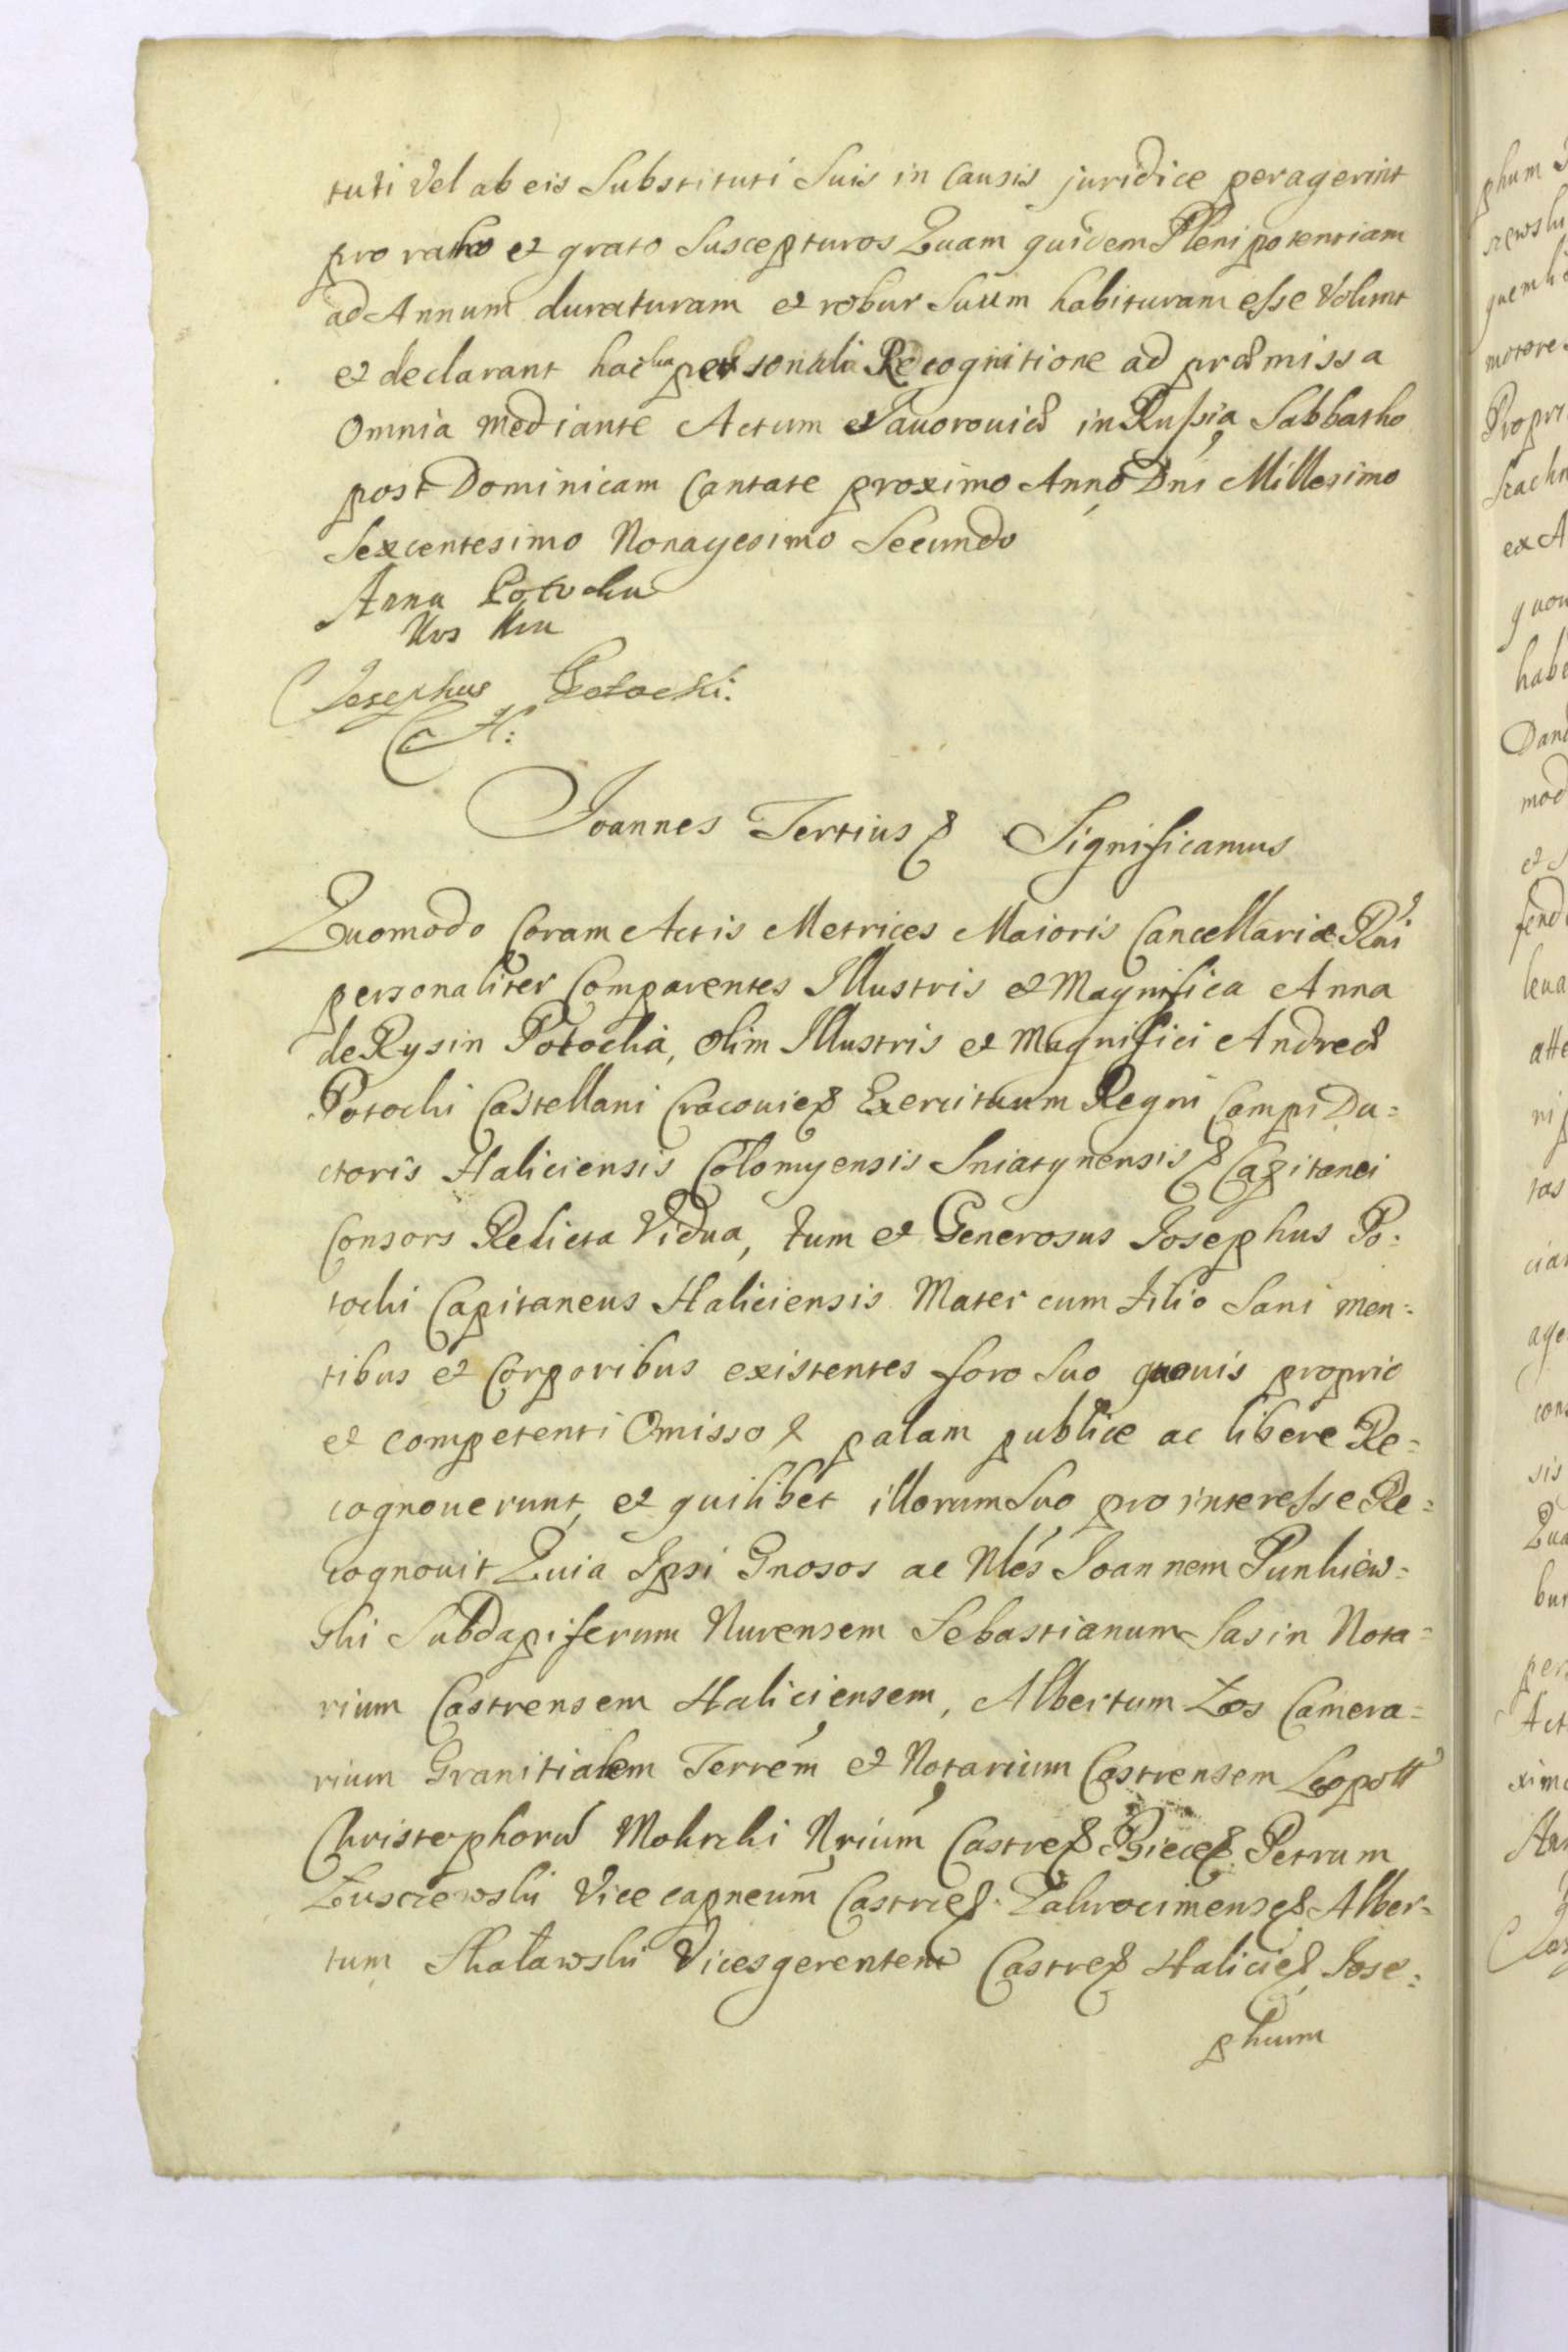 tuti vel ab eis Substituti Suis in Causis juridice peragerint
pro ratho et grato Suscepturos Quam quidem Plenipotentiam
ad Annum duraturam et robur Suum habituram esse Volunt
et declarant hac sua personali Recognitione ad præmissa
Omnia mediante Actum Javoroviæ in Russia Sabbatho
post Dominicam Cantate proximo Anno Dni Millesimo
Sexcentesimo Nonagesimo Secundo
Anna Potocka
Josephus Potocki:
C H:
Joannes Tertius & Significamus
Quomodo Coram Actis Metrices Maioris Cancellariæ Rni
personaliter Comparentes Illustris et Magnifica Anna
de Rysin Potocka, olim Illustris et Magnifici Andreæ
Potocki Castellani Cracovien Exercituum Regni Campi Du=
ctoris Haliciensis Colomyensis Sniatynensis & Capitanei
Consors Relicta Vidua, tum et Generosus Josephus Po=
tocki Capitaneus Haliciensis Mater cum filio Sani men=
tibus et Corporibus existentes foro Suo quovis proprio
et competenti Omisso & palam publice ac libere Re=
cognoverunt, et quilibet illorum Suo pro interesse Re=
cognovit Quia Ipsi Gnosos ac Nles Joannem Punkiew=
ski Subdapiferum Nurensem Sebastianum Sasin Nota=
rium Castrensem Haliciensem, Albertum Łos Camera=
rium Granitialem Terrem et Notarium Castrensem Leopoll
Christophorum Mokrski Nrium Castren Biecen Petrum
Vicecapneum Castren Zakrocimensem Alber=
tum Skaławski Vicesgerentem Castren Halicien Jose=
phum